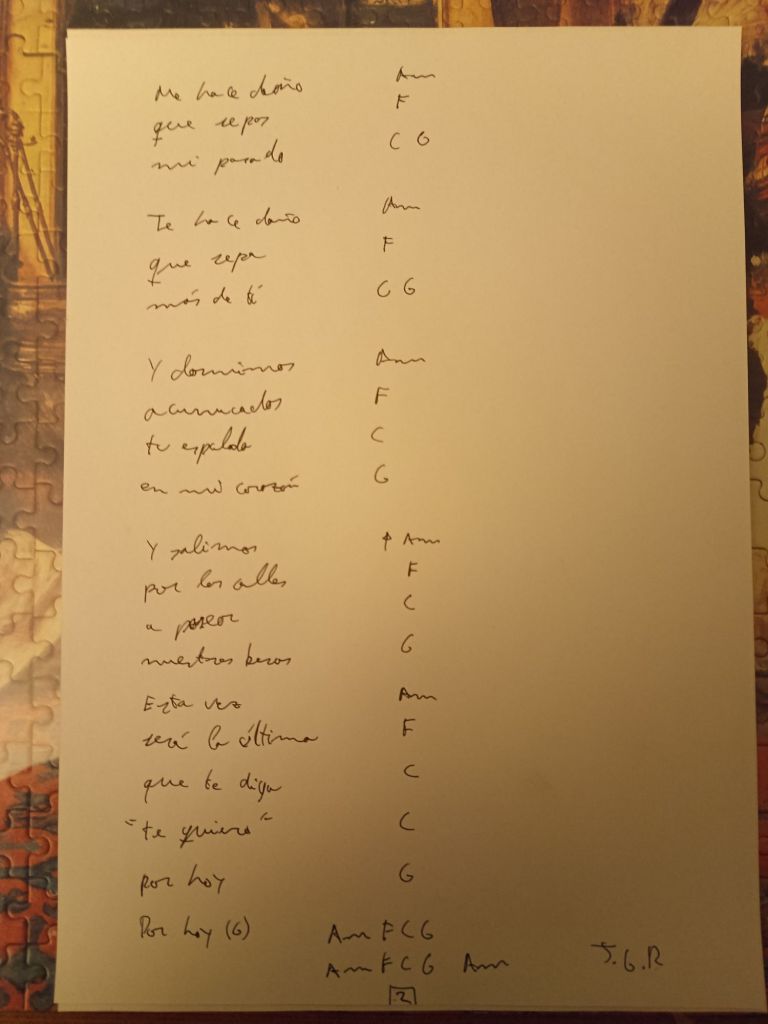 Me hace daño Am
que sepas F
mi pasado C G
Te hace daño Am
que sepa F
más de ti C G
Y dormimos Am
acurrucados F
tu espalda C
en mi corazón G
Y salimos Am
por las calles F
a pasear C
nuestros besos G
Esta vez Am
será la última F
que te diga C
"te quiero" C
por hoy G
Por hoy (G) Am F C G
Am F C G Am J.G.R
2